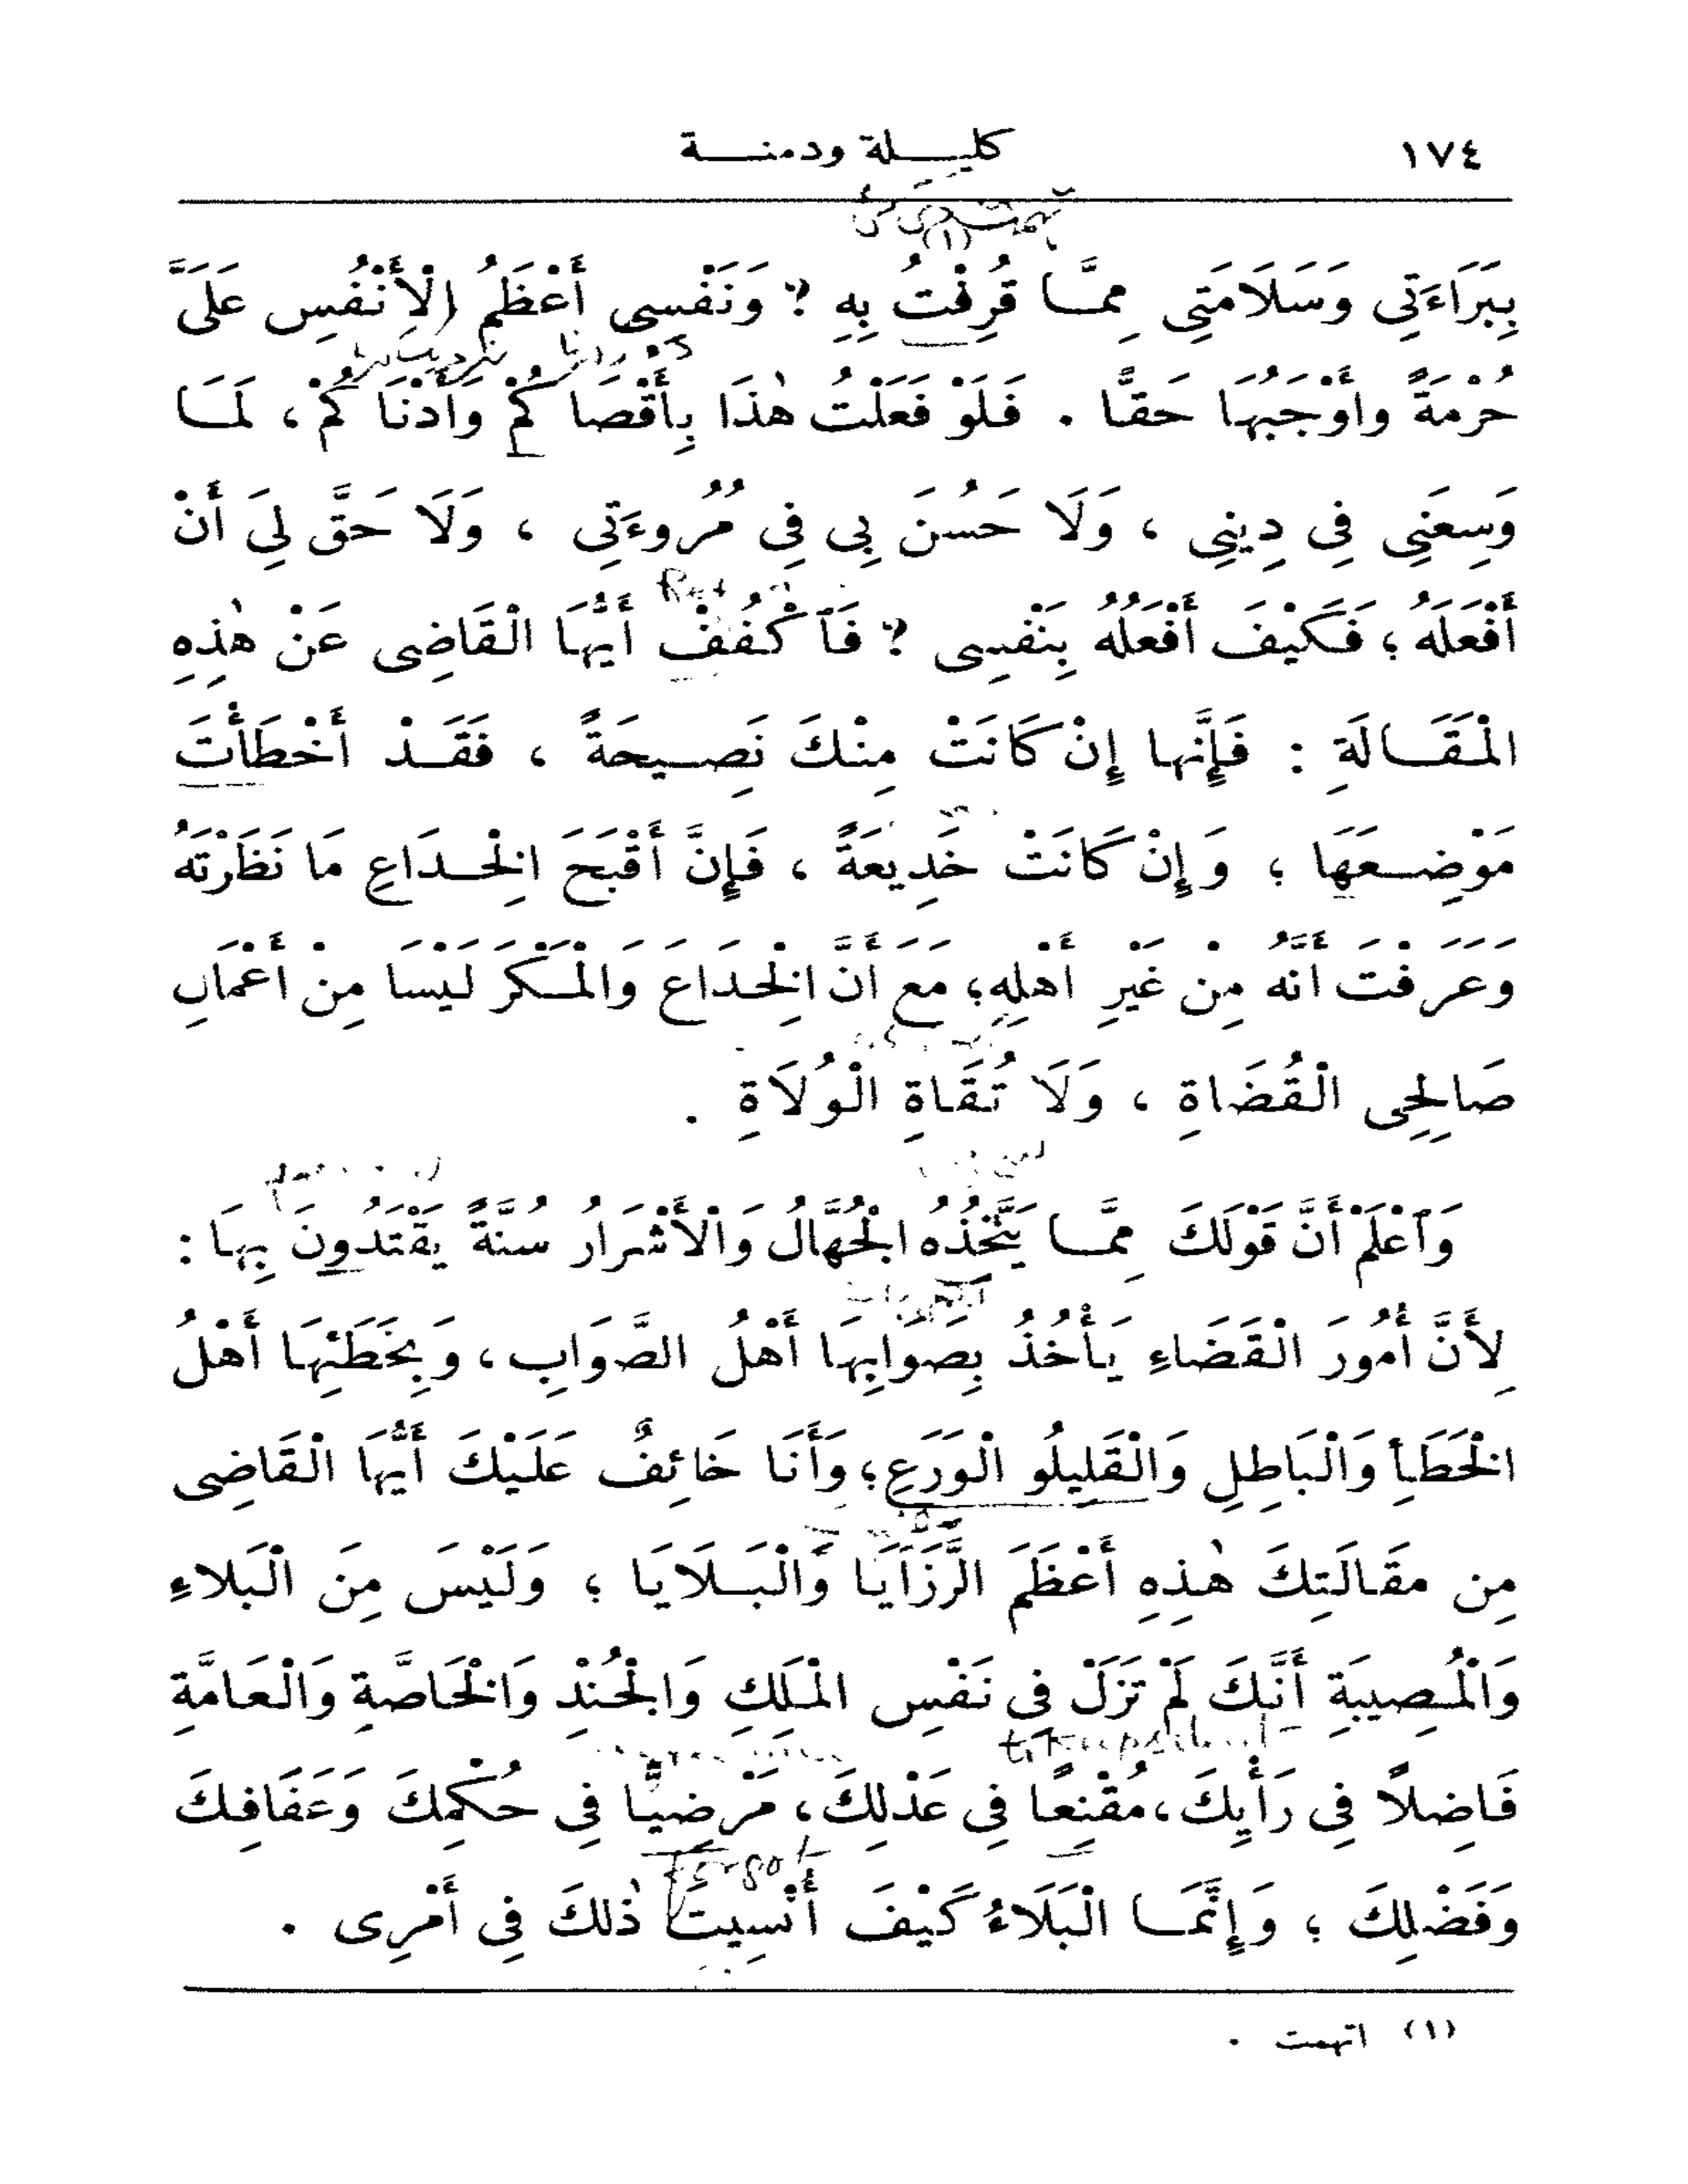 ١٧٤ كليلة ودمنة
بِبَرَاءَتِى وَسَلَامَتِى مِمَّا قُرِفْتُ (١) بِهِ ؟ وَنَفْسِى أَعْظَمُ الْأَنْفُسِ عَلَىَّ
حُرْمَةً وأَوْجَبُهَا حَقًّا . فَلَوْ فَعَلْتُ هٰذَا بِأَقْصَاكُمْ وَأَدْنَاكُمْ ، لَمَا
وَسِعَنِى فِى دِينِى ، وَلَا حَسُنَ بِى فِى مُرُوءَتِى ، وَلَا حَقَّ لِىَ أَنْ
أَفْعَلَهُ ؛ فَكَيْفَ أَفْعَلُهُ بِنَفْسِى ؟ فَٱكْفُفْ أَيُّهَا الْقَاضِى عَنْ هٰذِهِ
الْمَقَالَةِ : فَإِنَّها إِنْ كَانَتْ مِنْكَ نَصِيحَةً ، فَقَدْ أَخْطَأْتَ
مَوْضِعَهَا ؛ وَإِنْ كَانَتْ خَدِيعَةً ، فَإِنَّ أَقْبَحَ الْخِدَاعِ مَا نَظَرْتَهُ
وَعَرَفْتَ أَنَّهُ مِنْ غَيْرِ أَهْلِهِ ؛ مَعَ أَنَّ الْخِدَاعَ وَالْمَكْرَ لَيْسَا مِنْ أَعْمَالِ
صَالِحِى الْقُضَاةِ ، وَلَا ثُقَاةِ الْوُلَاةِ .
وَٱعْلَمْ أَنَّ قَوْلَكَ مِمَّا يَتَّخِذُهُ الْجُهَّالُ وَالْأَشْرَارُ سُنَّةً يَقْتَدُونَ بِهَا :
لِأَنَّ أُمُورَ الْقَضَاءِ يَأْخُذُ بِصَوَابِهَا أَهْلُ الصَّوَابِ ، وَبِخَطَئِهَا أَهْلُ
الْخَطَأِ وَالْبَاطِلِ وَالْقَلِيلُو الْوَرَعِ ؛ وَأَنَا خَائِفٌ عَلَيْكَ أَيُّهَا الْقَاضِى
مِن مَقَالَتِكَ هٰذِهِ أَعْظَمَ الرَّزَايَا وَالْبَلَايَا ؛ وَلَيْسَ مِنَ الْبَلاءِ
وَالْمُصِيبَةِ أَنَّكَ لَمْ تَزَلْ فِى نَفْسِ الْمَلِكِ وَالْجُنْدِ وَالْخَاصَّةِ وَالْعَامَّةِ
فَاضِلًا فِى رَأْيِكَ ، مُقْنِعًا فِى عَدْلِكَ ، مَرْضِيًّا فِى حُكْمِكَ وَعَفَافِكَ
forgot
وَفَضْلِكَ ؛ وَإِنَّمَا الْبَلَاءُ كَيْفَ أُنْسِيتَ ذٰلكَ فِى أَمْرِى .
(١) اتهمت .